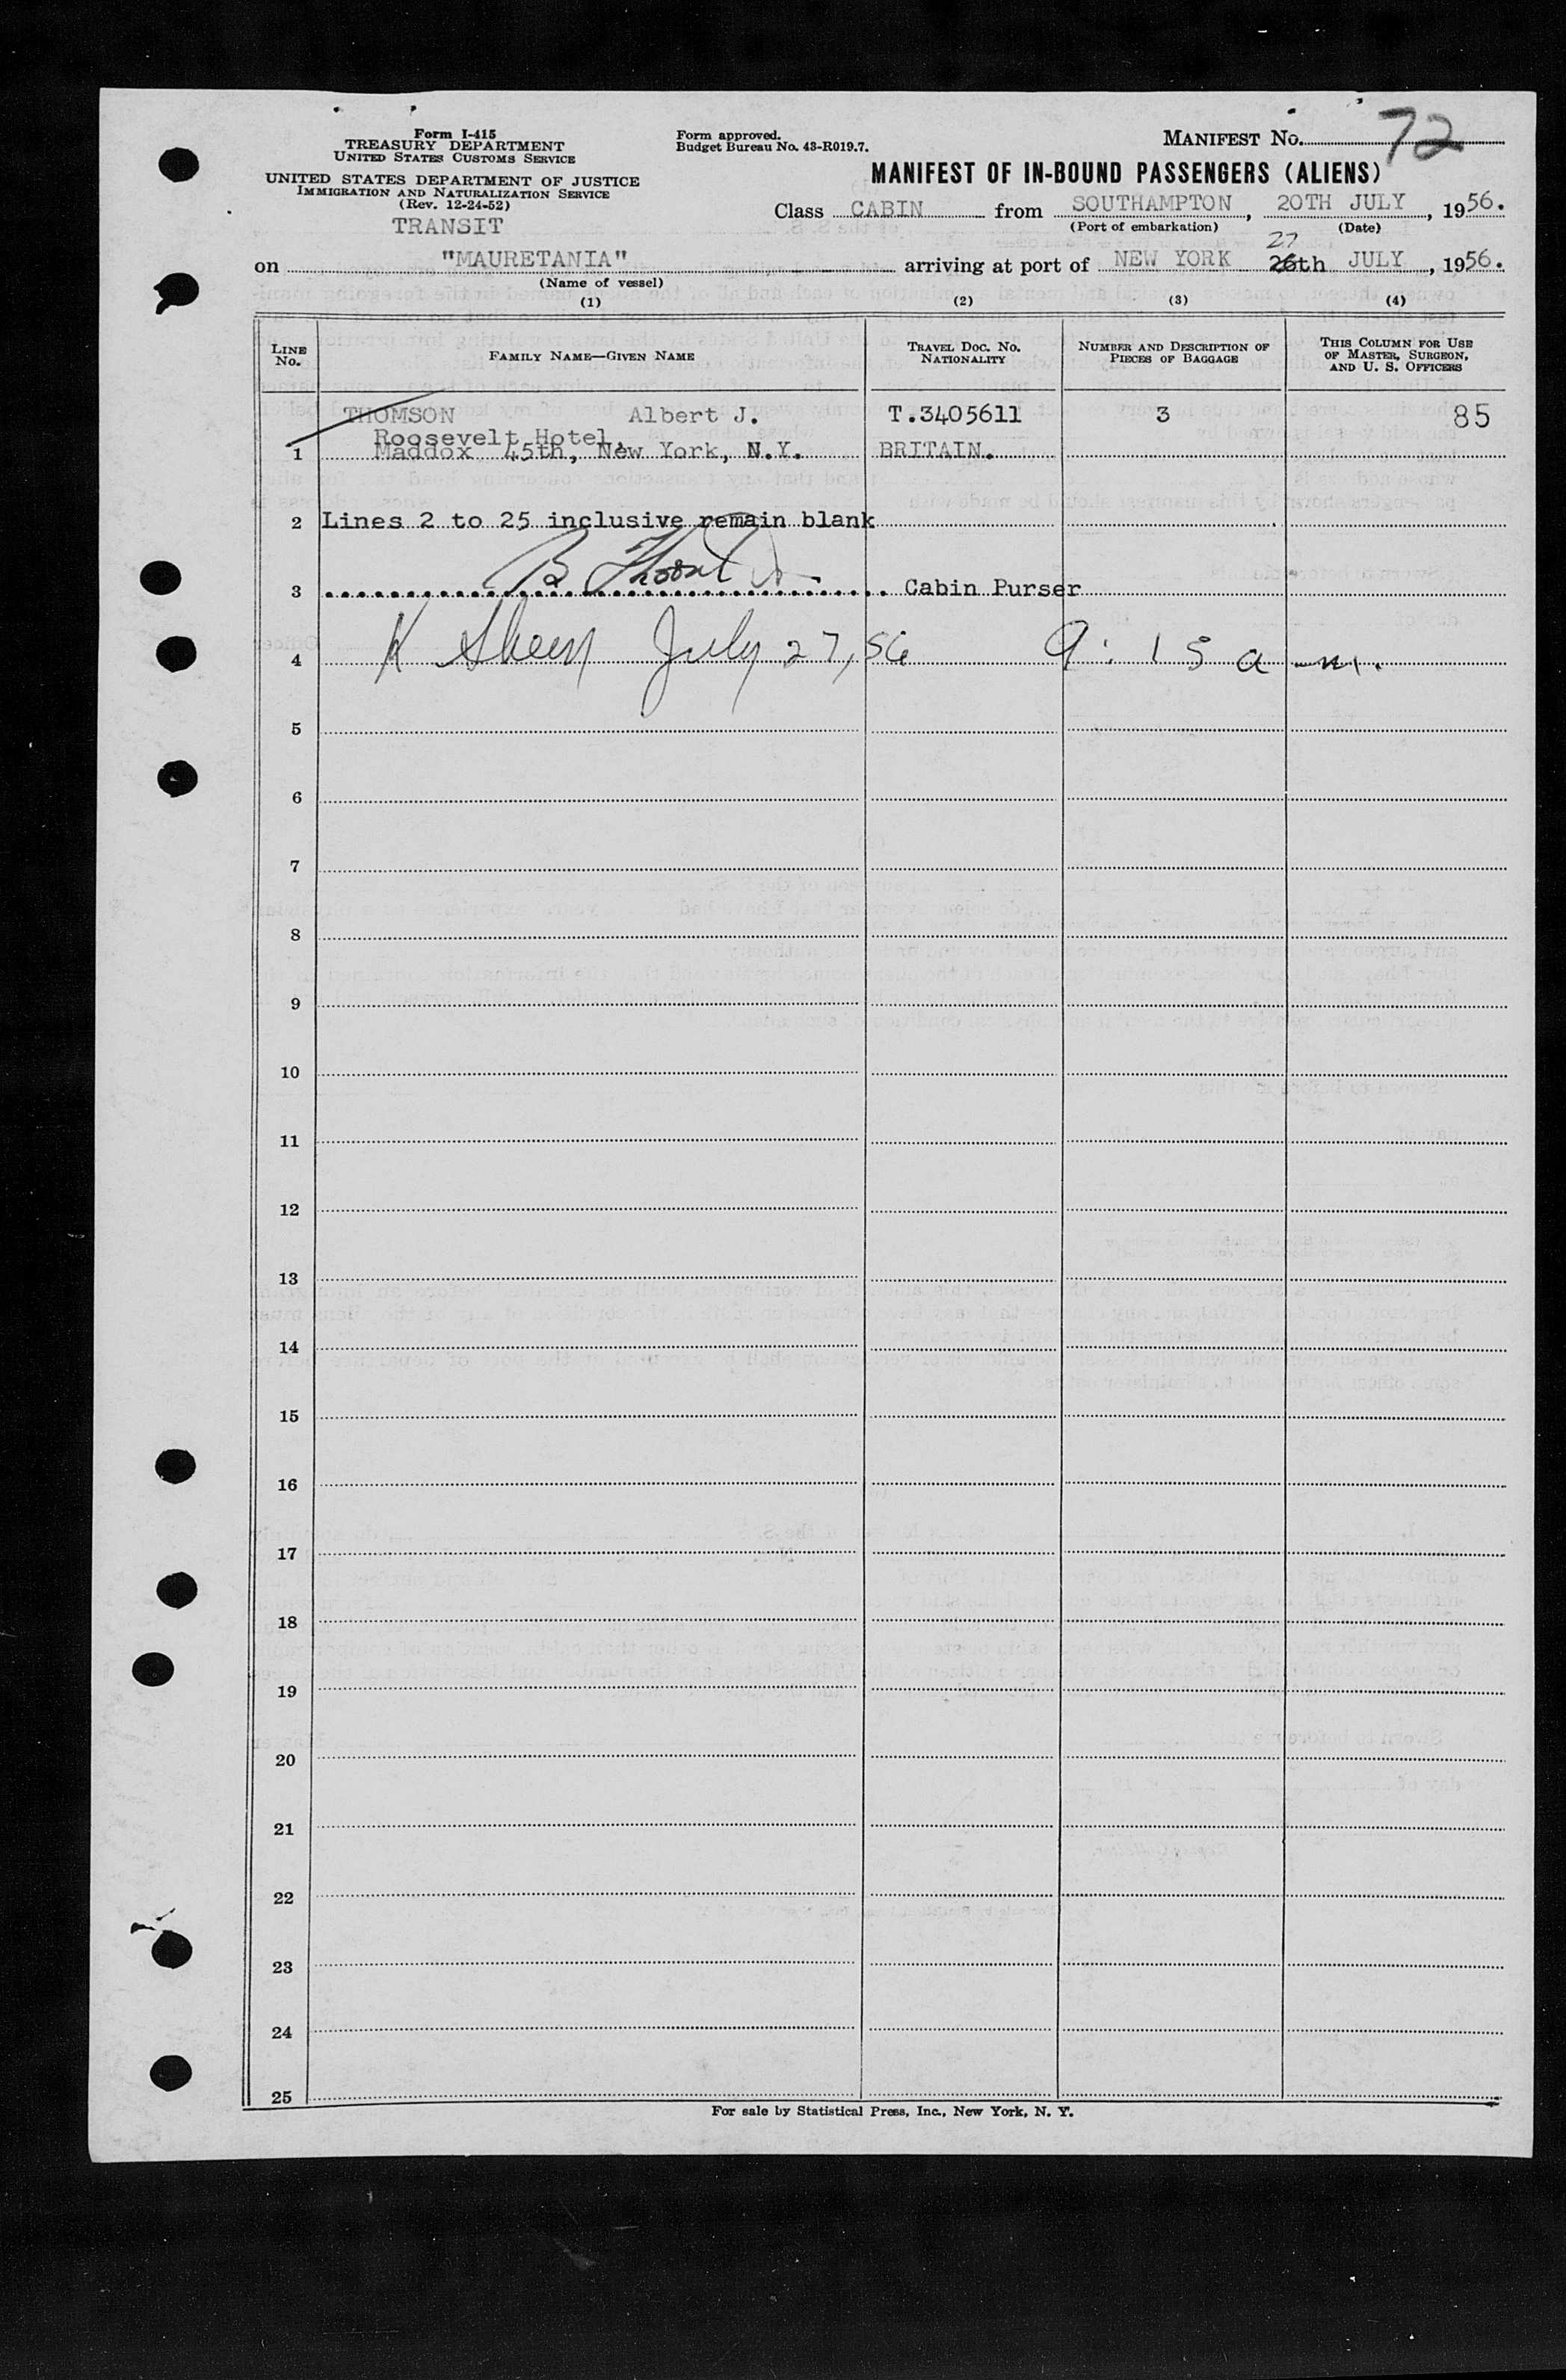 Form I-415
TREASURY DEPARTMENT
UNITED STATES CUSTOMS SERVICE
UNITED STATES DEPARTMENT OF JUSTICE
IMMIGRATION AND NATURALIZATION SERVICE
(Rev. 12-24-52)
TRANSIT
Form approved.
Budget Bureau No. 43-R019.7.
MANIFEST No. 72
MANIFEST OF IN-BOUND PASSENGERS (ALIENS)
Class CABIN from SOUTHAMPTON, 20TH JULY, 1956.
(Port of embarkation) (Date)
27
on "MAURETANIA" arriving at port of NEW YORK 26th JULY, 1956.
(Name of vessel)
(1) (2) (3) (4)
LINE No. FAMILY NAME—GIVEN NAME TRAVEL DOC. NO. NATIONALITY NUMBER AND DESCRIPTION OF PIECES OF BAGGAGE THIS COLUMN FOR USE OF MASTER, SURGEON, AND U. S. OFFICERS
THOMSON Albert J. T.3405611 3 85
Roosevelt Hotel,
1 Maddox 45th, New York, N.Y. BRITAIN.
2 Lines 2 to 25 inclusive remain blank
3 B Cabin Purser
4 K July 27, 56 9:15 a.m.
5
6
7
8
9
10
11
12
13
14
15
16
17
18
19
20
21
22
23
24
25
For sale by Statistical Press, Inc., New York, N. Y.